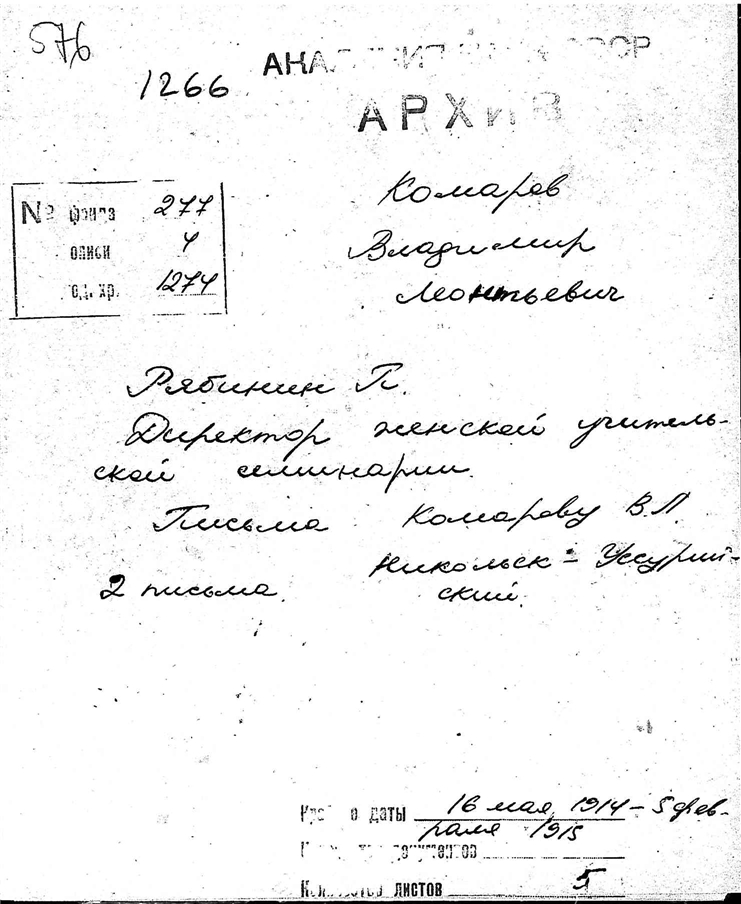 576
1266
АКАДЕМИЯ НАУК СССР
АРХИВ
№ фонда 277
описи 4
ед. хр. 1274
Комаров
Владимир
Леонтьевич
Рябинин П.
Директор женской учитель-
ской семинарии.
Письма Комарову В.Л.
Никольск-Уссурий-
2 письма. ский.
даты 16 мая 1914 – 5 фев-
раля 1915
документов
Количество листов 5